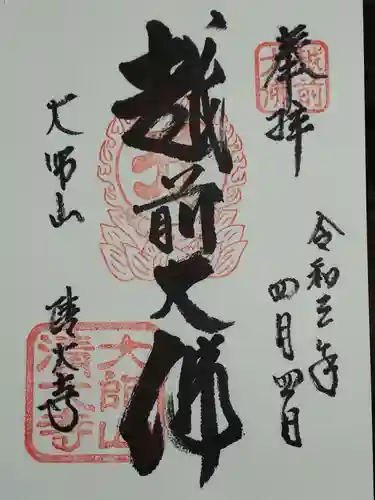 奉拝
越前大佛
令和三年
四月四日
越前大佛
大师山
清大寺
大師山清大寺